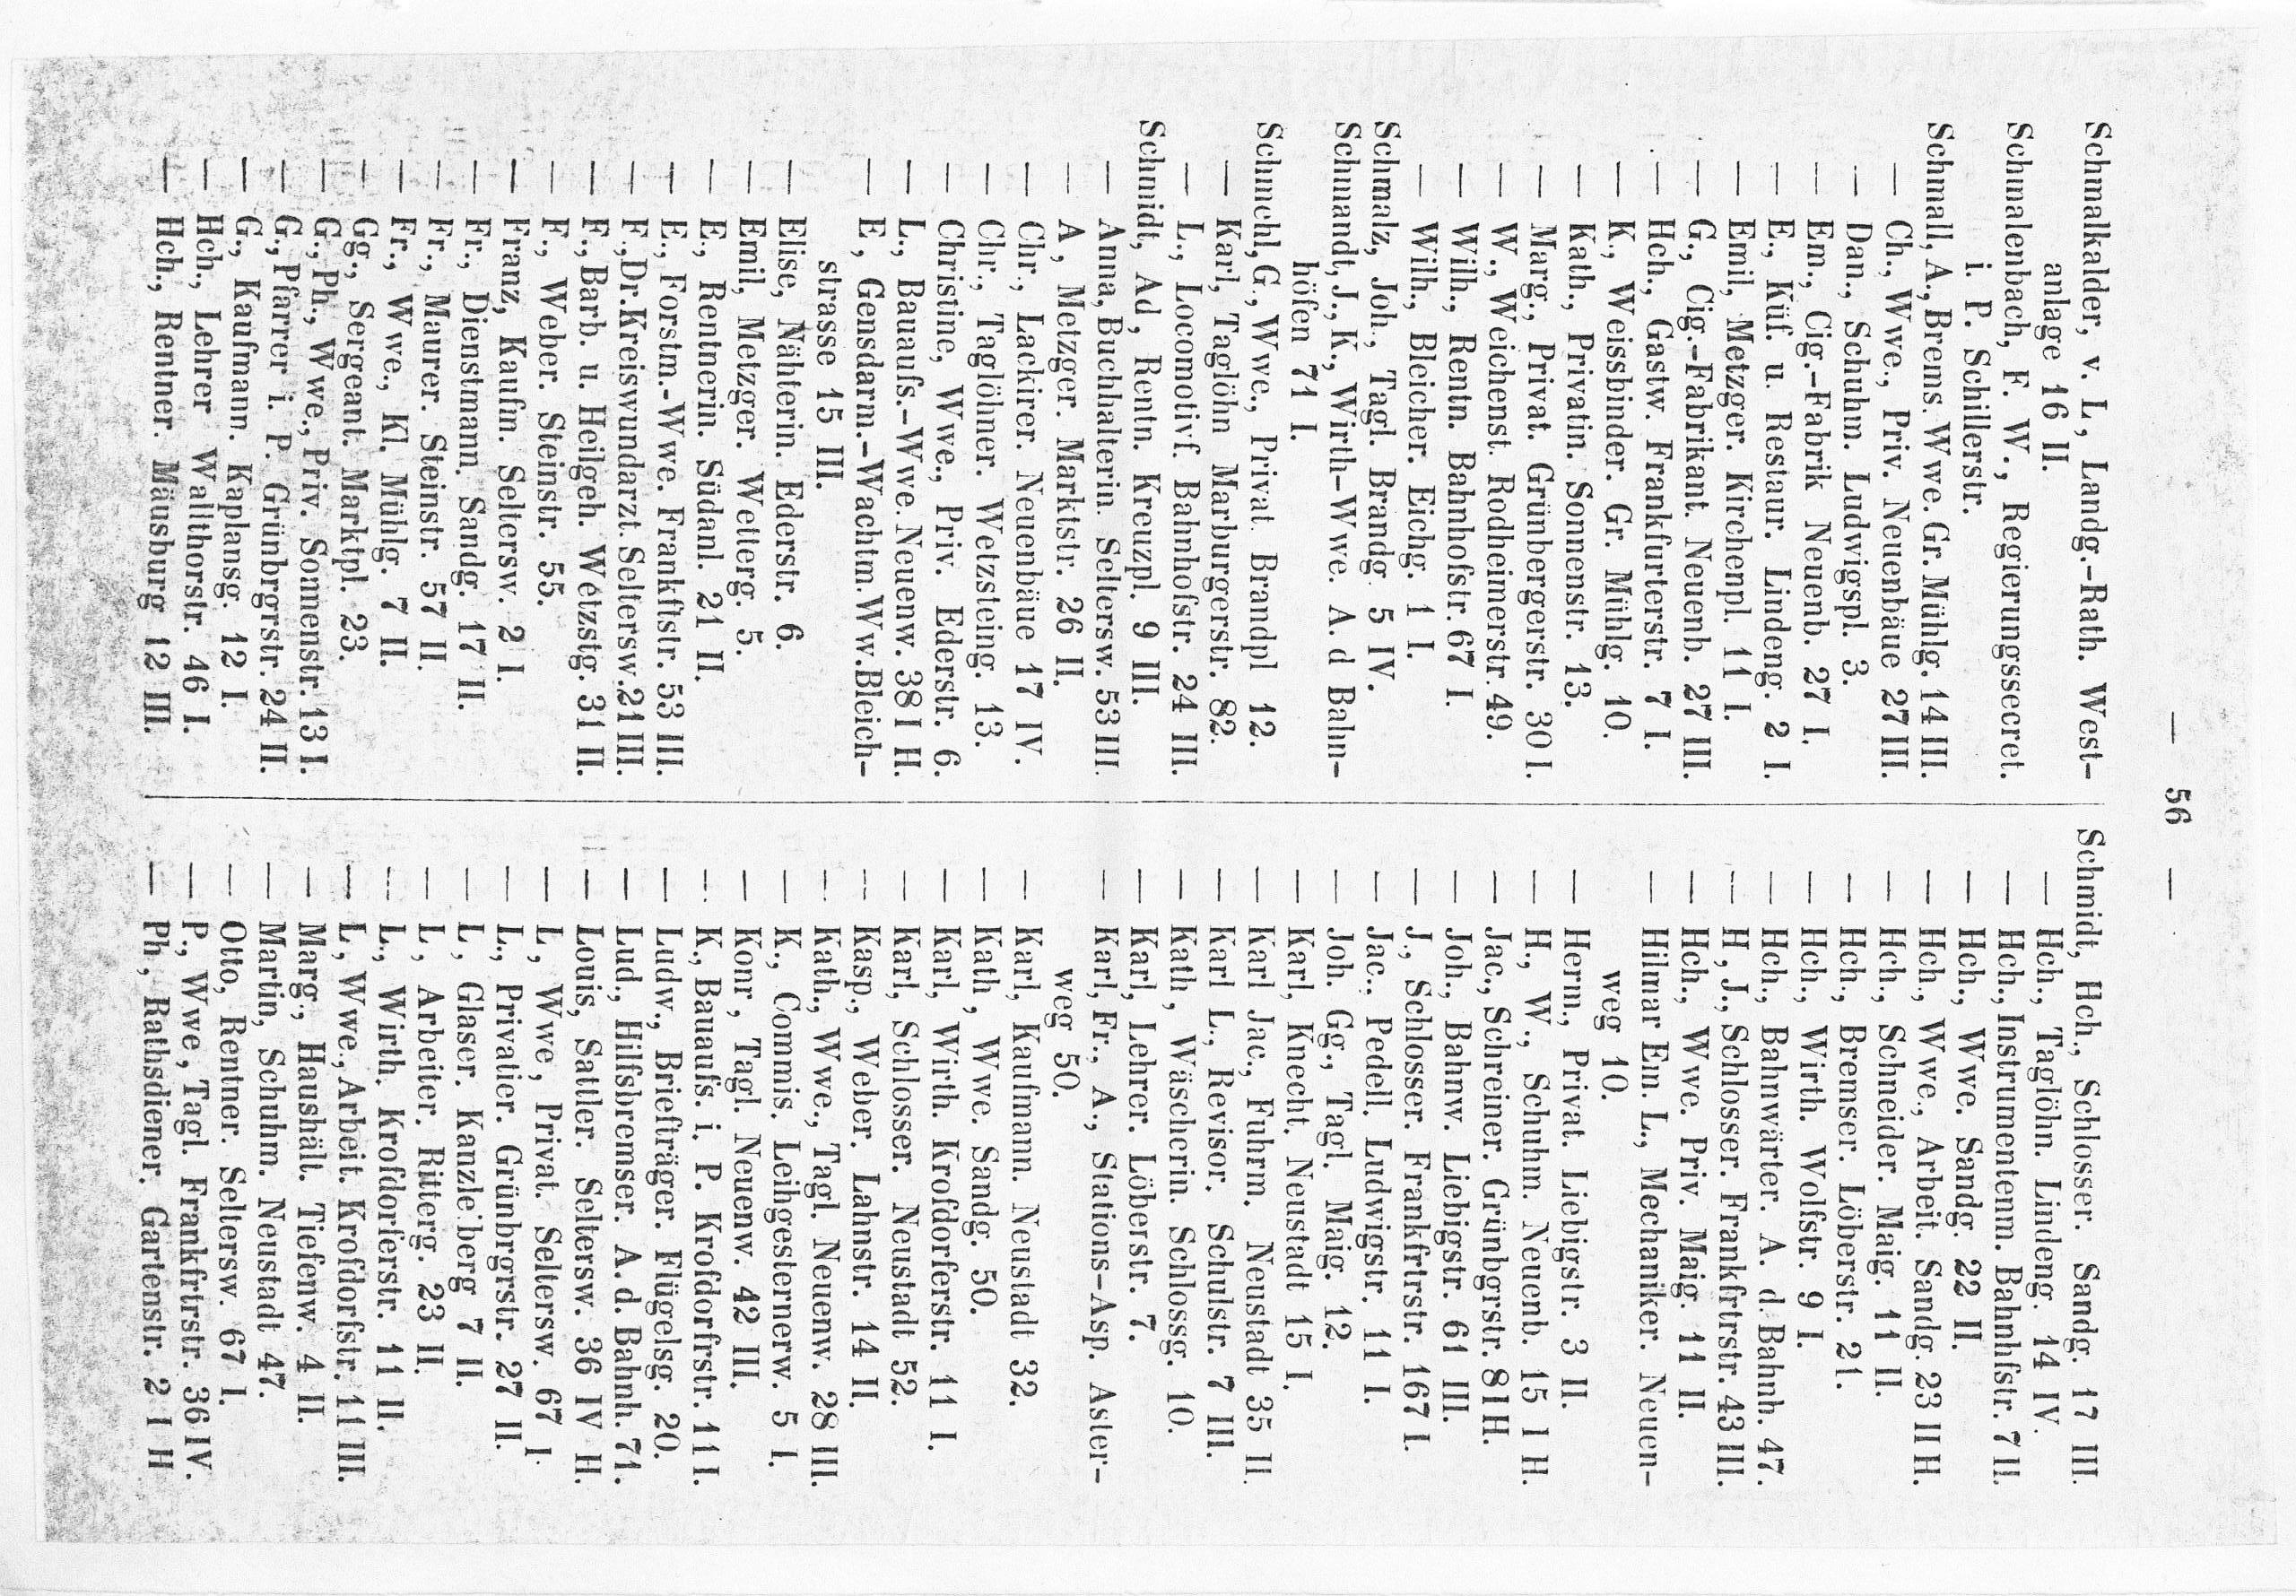 — 56 —
Schmalkalder, v. L, Landg.-Rath. West-
anlage 16 II.
Schmalenbach, F. W., Regierungssecret.
i. P. Schillerstr.
Schmall, A., Brems. Wwe. Gr. Mühlg. 14 III.
— Ch., Wwe., Priv. Neuenbäue 27 III.
— Dan., Schuhm. Ludwigspl. 3.
— Em., Cig.-Fabrik Neuenb. 27 I.
— E., Küf. u. Restaur. Lindeng. 2 I.
— Emil, Metzger. Kirchenpl. 11 I.
— G., Cig.-Fabrikant. Neuenb. 27 III.
— Hch., Gastw. Frankfurterstr. 7 I.
— K., Weissbinder. Gr. Mühlg. 10.
— Kath., Privatin. Sonnenstr. 13.
— Marg., Privat. Grünbergerstr. 30 I.
— W., Weichenst. Rodheimerstr. 49.
— Wilh., Rentn. Bahnhofstr. 67 I.
— Wilh., Bleicher. Eichg. 1 I.
Schmalz, Joh., Tagl. Brandg 5 IV.
Schmandt, J., K., Wirth-Wwe. A. d Bahn-
höfen 71 I.
Schmehl, G., Wwe., Privat. Brandpl 12.
— Karl, Taglöhn Marburgerstr. 82.
— L., Locomotivf. Bahnhofstr. 24 III.
Schmidt, Ad, Rentn. Kreuzpl. 9 III.
— Anna, Buchhalterin. Seltersw. 53 III.
— A, Metzger. Marktstr. 26 II.
— Chr., Lackirer. Neuenbäue 17 IV.
— Chr., Taglöhner. Wetzsteing. 13.
— Christine, Wwe., Priv. Ederstr. 6.
— L., Bauaufs.-Wwe. Neuenw. 38 I H.
— E, Gensdarm.-Wachtm. Ww. Bleich-
strasse 15 III.
— Elise, Nähterin. Ederstr. 6.
— Emil, Metzger. Wetterg. 5.
— E., Rentnerin. Südanl. 21 II.
— E., Forstm.-Wwe. Frankftstr. 53 III.
— F., Dr. Kreiswundarzt. Seltersw. 21 III.
— F., Barb. u. Heilgeh. Wetzstg. 31 II.
— F., Weber. Steinstr. 55.
— Franz, Kaufm. Seltersw. 2 I.
— Fr., Dienstmann. Sandg. 17 II.
— Fr., Maurer. Steinstr. 57 II.
— Fr., Wwe., Kl. Mühlg. 7 II.
— Gg., Sergeant. Marktpl. 23.
— G., Ph., Wwe., Priv. Sonnenstr. 13 I.
— G., Pfarrer i. P. Grünbrgrstr. 24 II.
— G., Kaufmann. Kaplansg. 12 I.
— Hch., Lehrer Wallthorstr. 46 I.
— Hch., Rentner. Mäusburg 12 III.
Schmidt, Hch., Schlosser. Sandg. 17 III.
— Hch., Taglöhn. Lindeng. 14 IV.
— Hch., Instrumentenm. Bahnhfstr. 7 II.
— Hch., Wwe. Sandg. 22 II.
— Hch., Wwe., Arbeit. Sandg. 23 II H.
— Hch., Schneider. Maig. 11 II.
— Hch., Bremser. Löberstr. 21.
— Hch., Wirth. Wolfstr. 9 I.
— Hch., Bahnwärter. A. d. Bahnh. 47.
— H, J., Schlosser. Frankfrtrstr. 43 III.
— Hch., Wwe. Priv. Maig. 11 II.
— Hilmar Em. L., Mechaniker. Neuen-
weg 10.
— Herm., Privat. Liebigstr. 3 II.
— H., W., Schuhm. Neuenb. 15 I H.
— Jac., Schreiner. Grünbgrstr. 81 H.
— Joh., Bahnw. Liebigstr. 61 III.
— J., Schlosser. Frankfrtrstr. 167 I.
— Jac., Pedell. Ludwigstr. 11 I.
— Joh. Gg., Tagl. Maig. 12.
— Karl, Knecht. Neustadt 15 I.
— Karl Jac., Fuhrm. Neustadt 35 II
— Karl L., Revisor. Schulstr. 7 III.
— Kath, Wäscherin. Schlossg. 10.
— Karl, Lehrer. Löberstr. 7.
— Karl, Fr., A., Stations-Asp. Aster-
weg 50.
— Karl, Kaufmann. Neustadt 32.
— Kath, Wwe. Sandg. 50.
— Karl, Wirth. Krofdorferstr. 11 I.
— Karl, Schlosser. Neustadt 52.
— Kasp., Weber. Lahnstr. 14 II.
— Kath., Wwe., Tagl. Neuenw. 28 III.
— K., Commis. Leihgesternerw. 5 I.
— Konr, Tagl. Neuenw. 42 III.
— K., Bauaufs. i. P. Krofdorfrstr. 11 I.
— Ludw., Briefträger. Flügelsg. 20.
— Lud., Hilfsbremser. A. d. Bahnh. 71.
— Louis, Sattler. Seltersw. 36 IV H.
— L, Wwe, Privat. Seltersw. 67 I.
— L., Privatier. Grünbrgrstr. 27 II.
— L, Glaser. Kanzleiberg 7 II.
— L, Arbeiter. Ritterg. 23 II.
— L., Wirth. Krofdorferstr. 11 II.
— L, Wwe., Arbeit. Krofdorfstr. 11 III.
— Marg., Haushält. Tiefenw. 4 II.
— Martin, Schuhm. Neustadt 47.
— Otto, Rentner. Seltersw. 67 I.
— P., Wwe, Tagl. Frankfrtrstr. 36 IV.
— Ph, Rathsdiener. Gartenstr. 2 I H